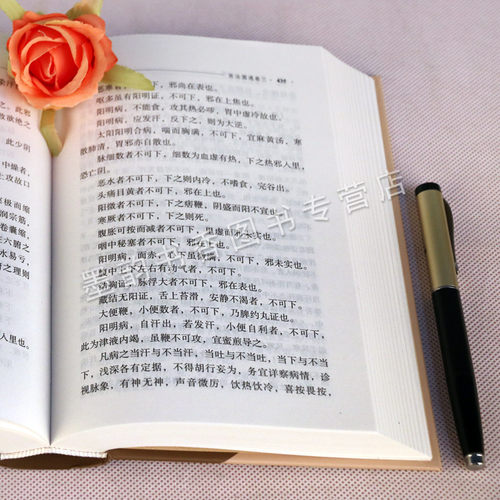 医法圆通卷三 435
恶寒者，不可下，邪尚在表也。
呕多虽有阳明证，不可下，邪在上焦也。
阳明病，不能食，攻其热必哕，胃中虚冷故也。
阳明病，应发汗，反下之，则为大逆。
太阳阳明合病，喘而胸满，不可下，宜麻黄汤，寒
散肺清，胃邪亦自散也。
脉细数者不可下，细数为血虚有热，下之热邪入里，
恐亡阴。
恶水者不可下，下之则内冷，不嗜食，完谷出。
头痛目黄者不可下，邪在上也。
阳微者不可下，下之痞鞭，阴盛而阳不宣也。
寒厥者不可下，下之则死。
腹胀可按而减者不可下，里虚而邪未实也。
咽中秘塞者不可下，邪在
阳明病，面赤，心下虽 不可下，邪未实也。
脐中上下左右有动气者，不可下。
动 证，脉浮大者不可下，邪在表也。
藏结无阳证，舌上苔滑，安静不渴者，不可下。
大便鞭，小便数者，不可下，乃脾约丸证也。
阳明病，自汗出，若发汗，小便自利者，不可下，
此为津液内竭，虽鞭不可攻，宜蜜煎导之。
凡病之当汗与不当汗，当吐与不当吐，当下与不当
下，浅深各有定据，不得胡行妄为，务宜详察病情，诊
视脉象，有神无神，声音微厉，饮热饮冷，喜按畏按，
此少阴
中燥者，
上攻故口
宗筋，
卷囊缩，
六腑之
水易亏，
之理则
入里也。
墨韵书香图书专营店